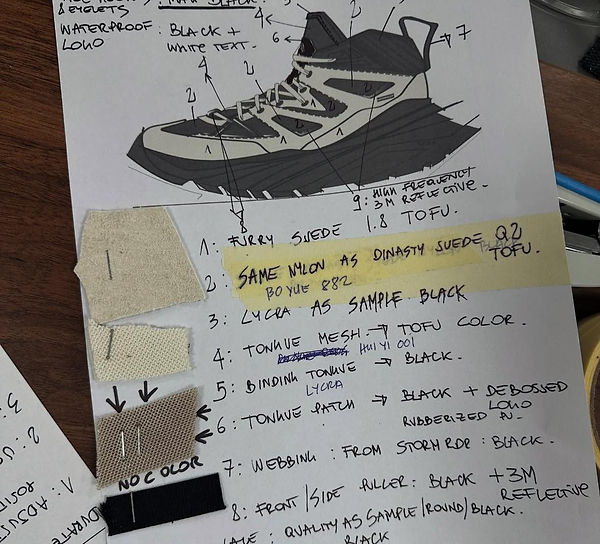 & EYELETS
WATERPROOF : BLACK +
LOGO WHITE TEXT.
4 2
6 7
4
2 2
1 1 2 1 2
8
9: HIGH FREQUENCY
3M REFLECTIVE.
1: FURRY SUEDE 1.8 TOFU.
2: SAME NYLON AS DINASTY SUEDE Q2
TOFU.
BO YUE 882
3: LYCRA AS SAMPLE BLACK
4: TONGUE MESH → TOFU COLOR.
HUI YI 001
5: BINDING TONGUE → BLACK.
LYCRA
6: TONGUE PATCH → BLACK + DEBOSSED
LOGO
RUBBERIZED
NO COLOR
7: WEBBING : FROM STORMRDR : BLACK.
8: FRONT / SIDE PULLER: BLACK + 3M
REFLECTIVE
: QUALITY AS SAMPLE / ROUND / BLACK.
BLACK
3:
2:
1: ADJUST